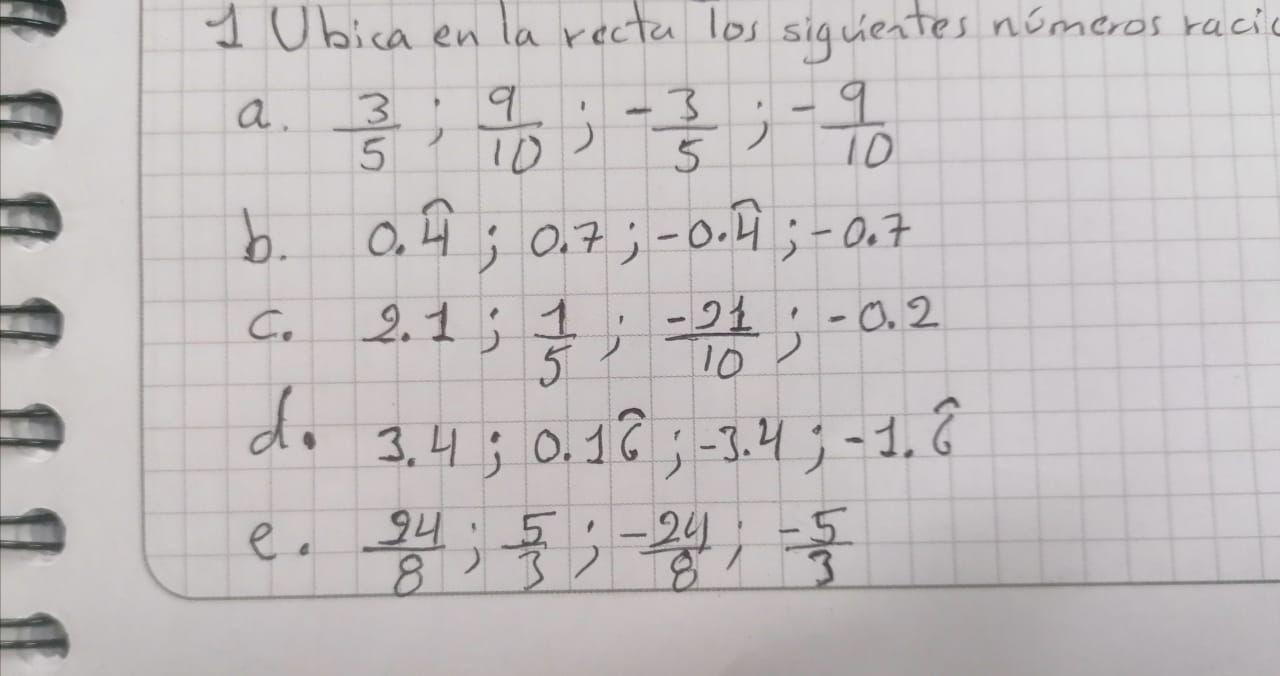 1 Ubica en la recta los siguientes números racio
a. 3/5 ; 9/10 ; -3/5 ; -9/10
b. 0.4̂ ; 0.7 ; -0.4̂ ; -0.7
c. 2.1 ; 1/5 ; -21/10 ; -0.2
d. 3.4 ; 0.16̂ ; -3.4 ; -1.6̂
e. 24/8 ; 5/3 ; -24/8 ; -5/3